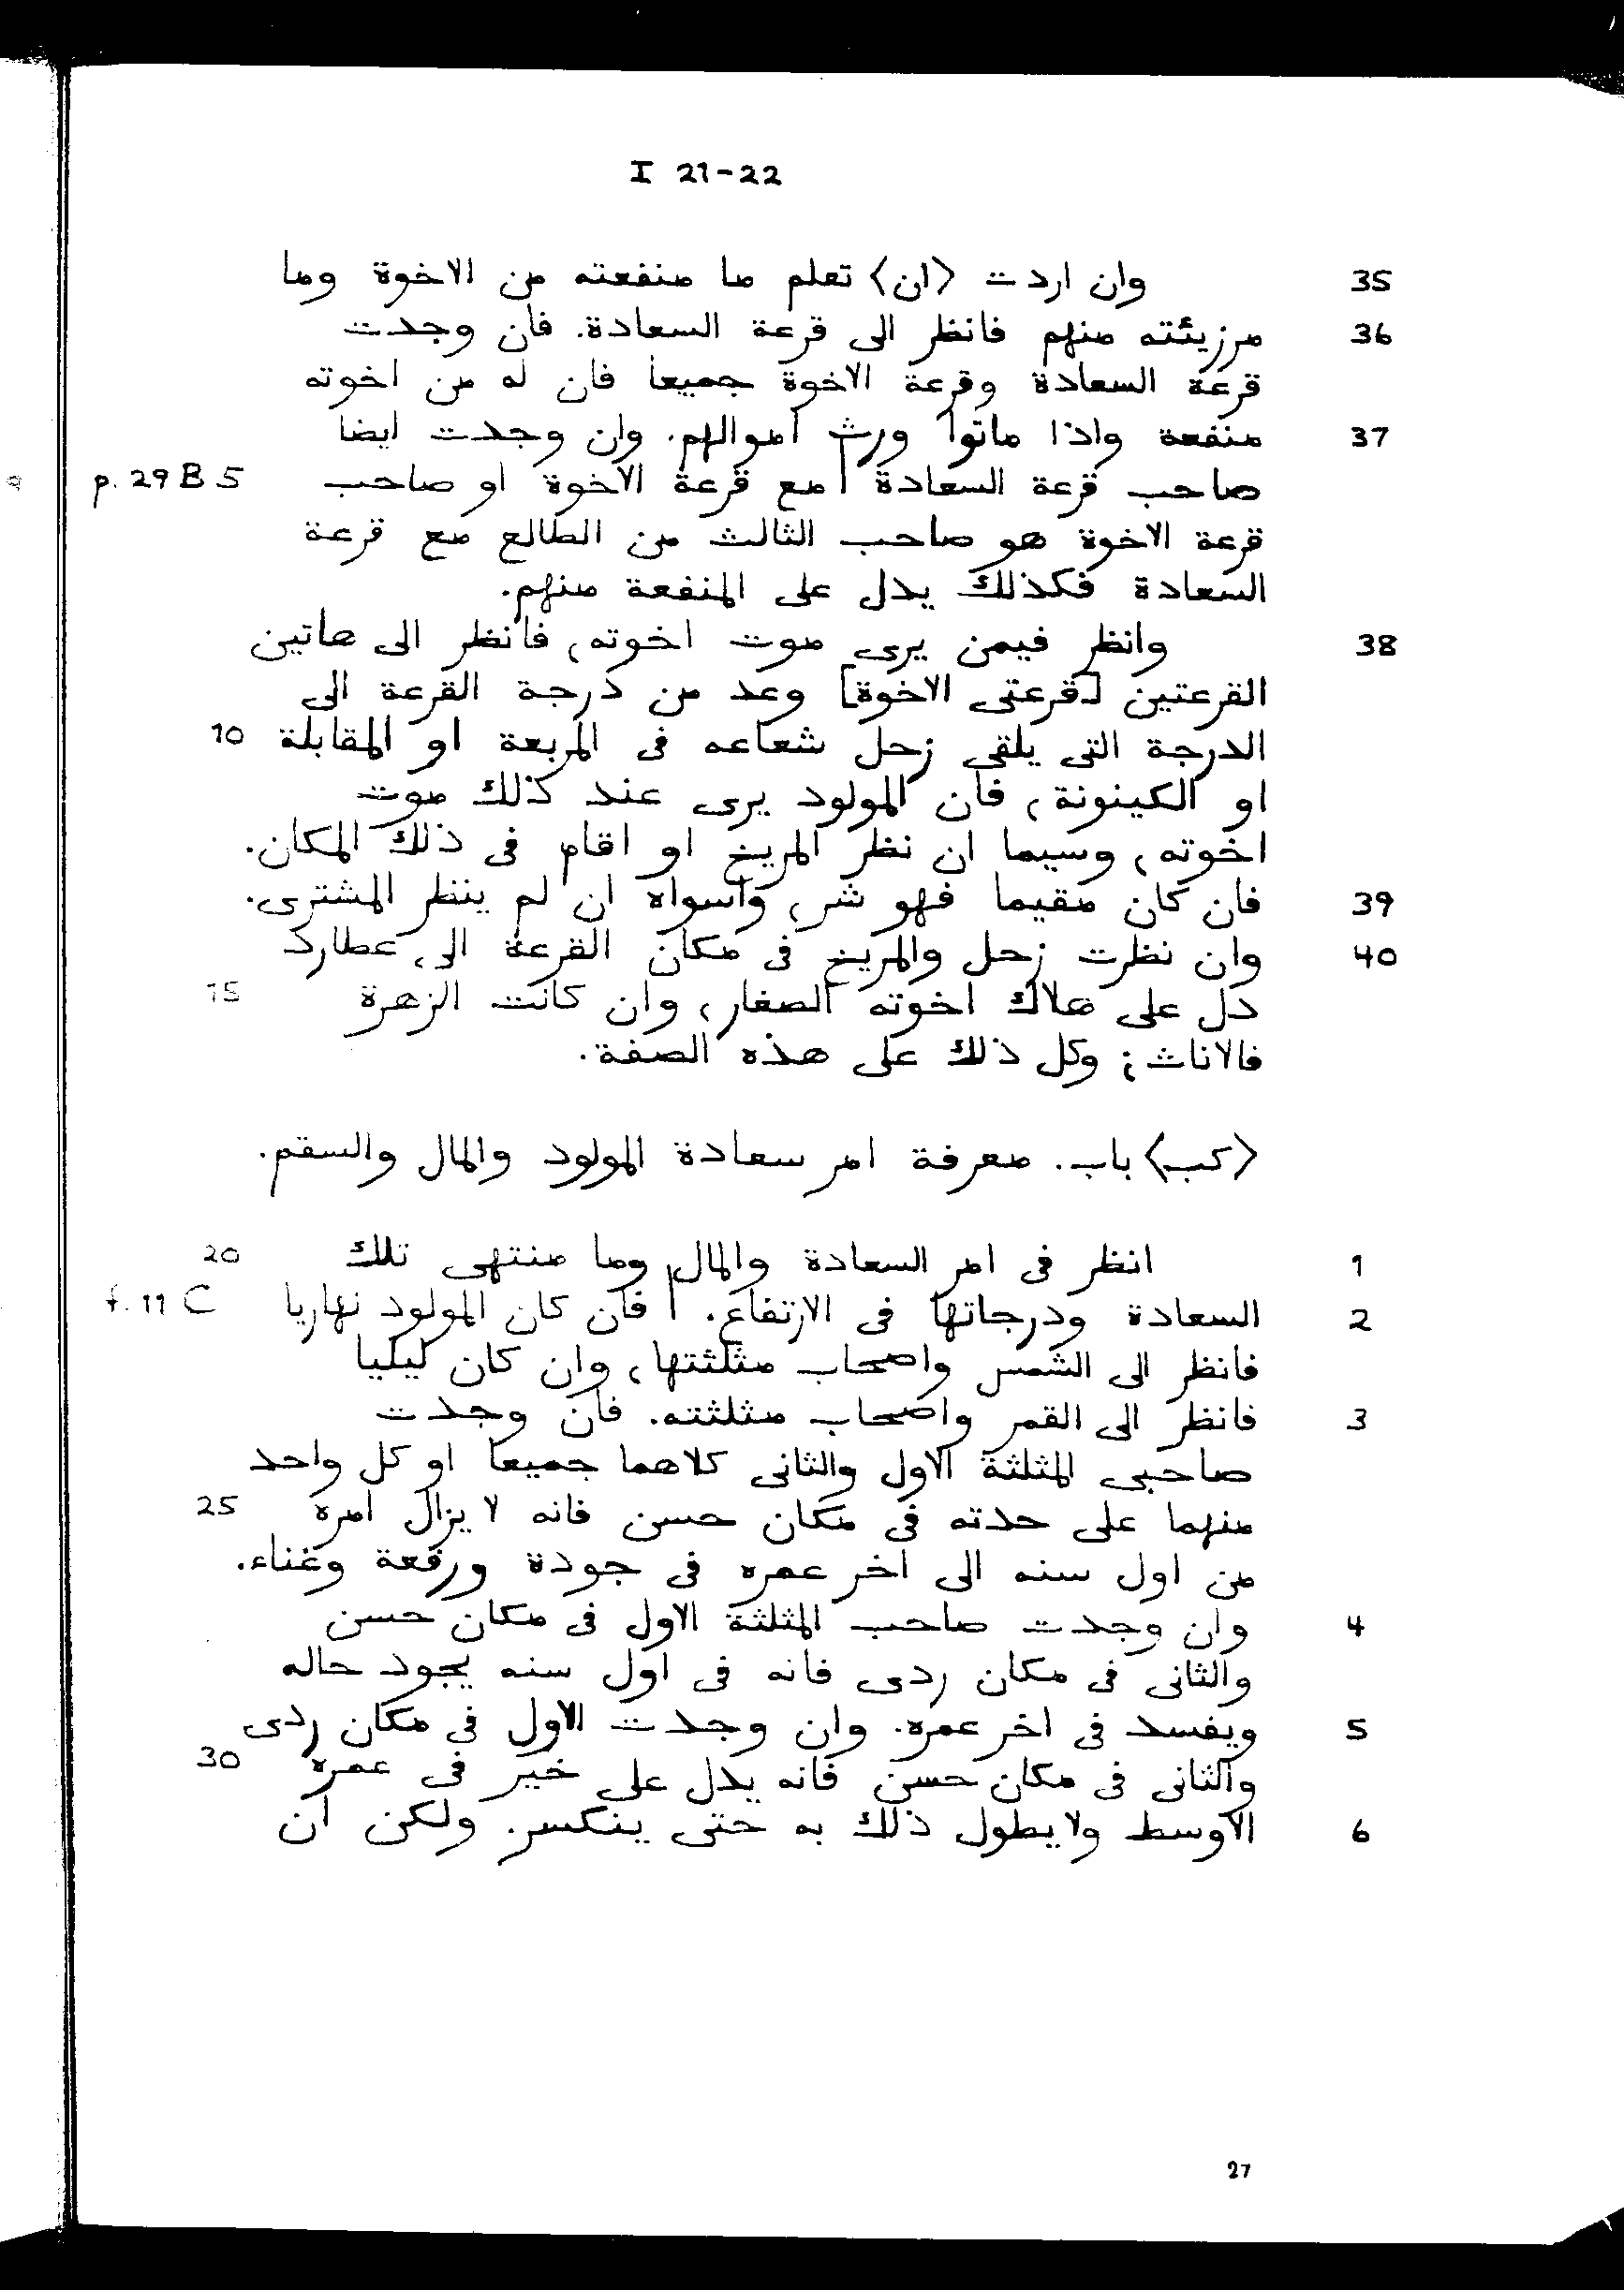 I 21-22
35 وان اردت <ان> تعلم ما منفعته من الاخوة وما
36 مرزيئته منهم فانظر الى قرعة السعادة. فان وجدت
قرعة السعادة وقرعة الاخوة جميعا فان له من اخوته
37 منفعة واذا ماتوا ورث اموالهم. وان وجدت ايضا
صاحب قرعة السعادة | مع قرعة الاخوة او صاحب p. 29 B 5
قرعة الاخوة هو صاحب الثالث من الطالع مع قرعة
السعادة فكذلك يدل على المنفعة منهم.
38 وانظر فيمن يرى موت اخوته، فانظر الى هاتين
القرعتين [قرعتى الاخوة] وعد من درجة القرعة الى
الدرجة التى يلقى زحل شعاعه فى المربعة او المقابلة 10
او الكينونة، فان المولود يرى عند ذلك موت
اخوته، وسيما ان نظر المريخ او اقام فى ذلك المكان.
39 فان كان مقيما فهو شر، واسواه ان لم ينظر المشترى.
40 وان نظرت زحل والمريخ فى مكان القرعة الى، عطارد
دل على هلاك اخوته الصغار، وان كانت الزهرة 15
فالاناث؛ وكل ذلك على هذه الصفة.
<كب> باب. معرفة امر سعادة المولود والمال والسقم.
1 انظر فى امر السعادة والمال وما منتهى تلك 20
2 السعادة ودرجاتها فى الارتفاع. | فان كان المولود نهاريا f. 11 C
فانظر الى الشمس واصحاب مثلثتها، وان كان ليليا
3 فانظر الى القمر واصحاب مثلثته. فان وجدت
صاحبى المثلثة الاول والثانى كلاهما جميعا او كل واحد
منهما على حدته فى مكان حسن فانه لا يزال امره 25
من اول سنه الى اخر عمره فى جودة ورفعة وغناء.
4 وان وجدت صاحب المثلثة الاول فى مكان حسن
والثانى فى مكان ردى فانه فى اول سنه يجود حاله
5 ويفسد فى اخر عمره. وان وجدت الاول فى مكان ردى
والثانى فى مكان حسن فانه يدل على خير فى عمره 30
6 الاوسط ولا يطول ذلك به حتى ينكسر. ولكن ان
27